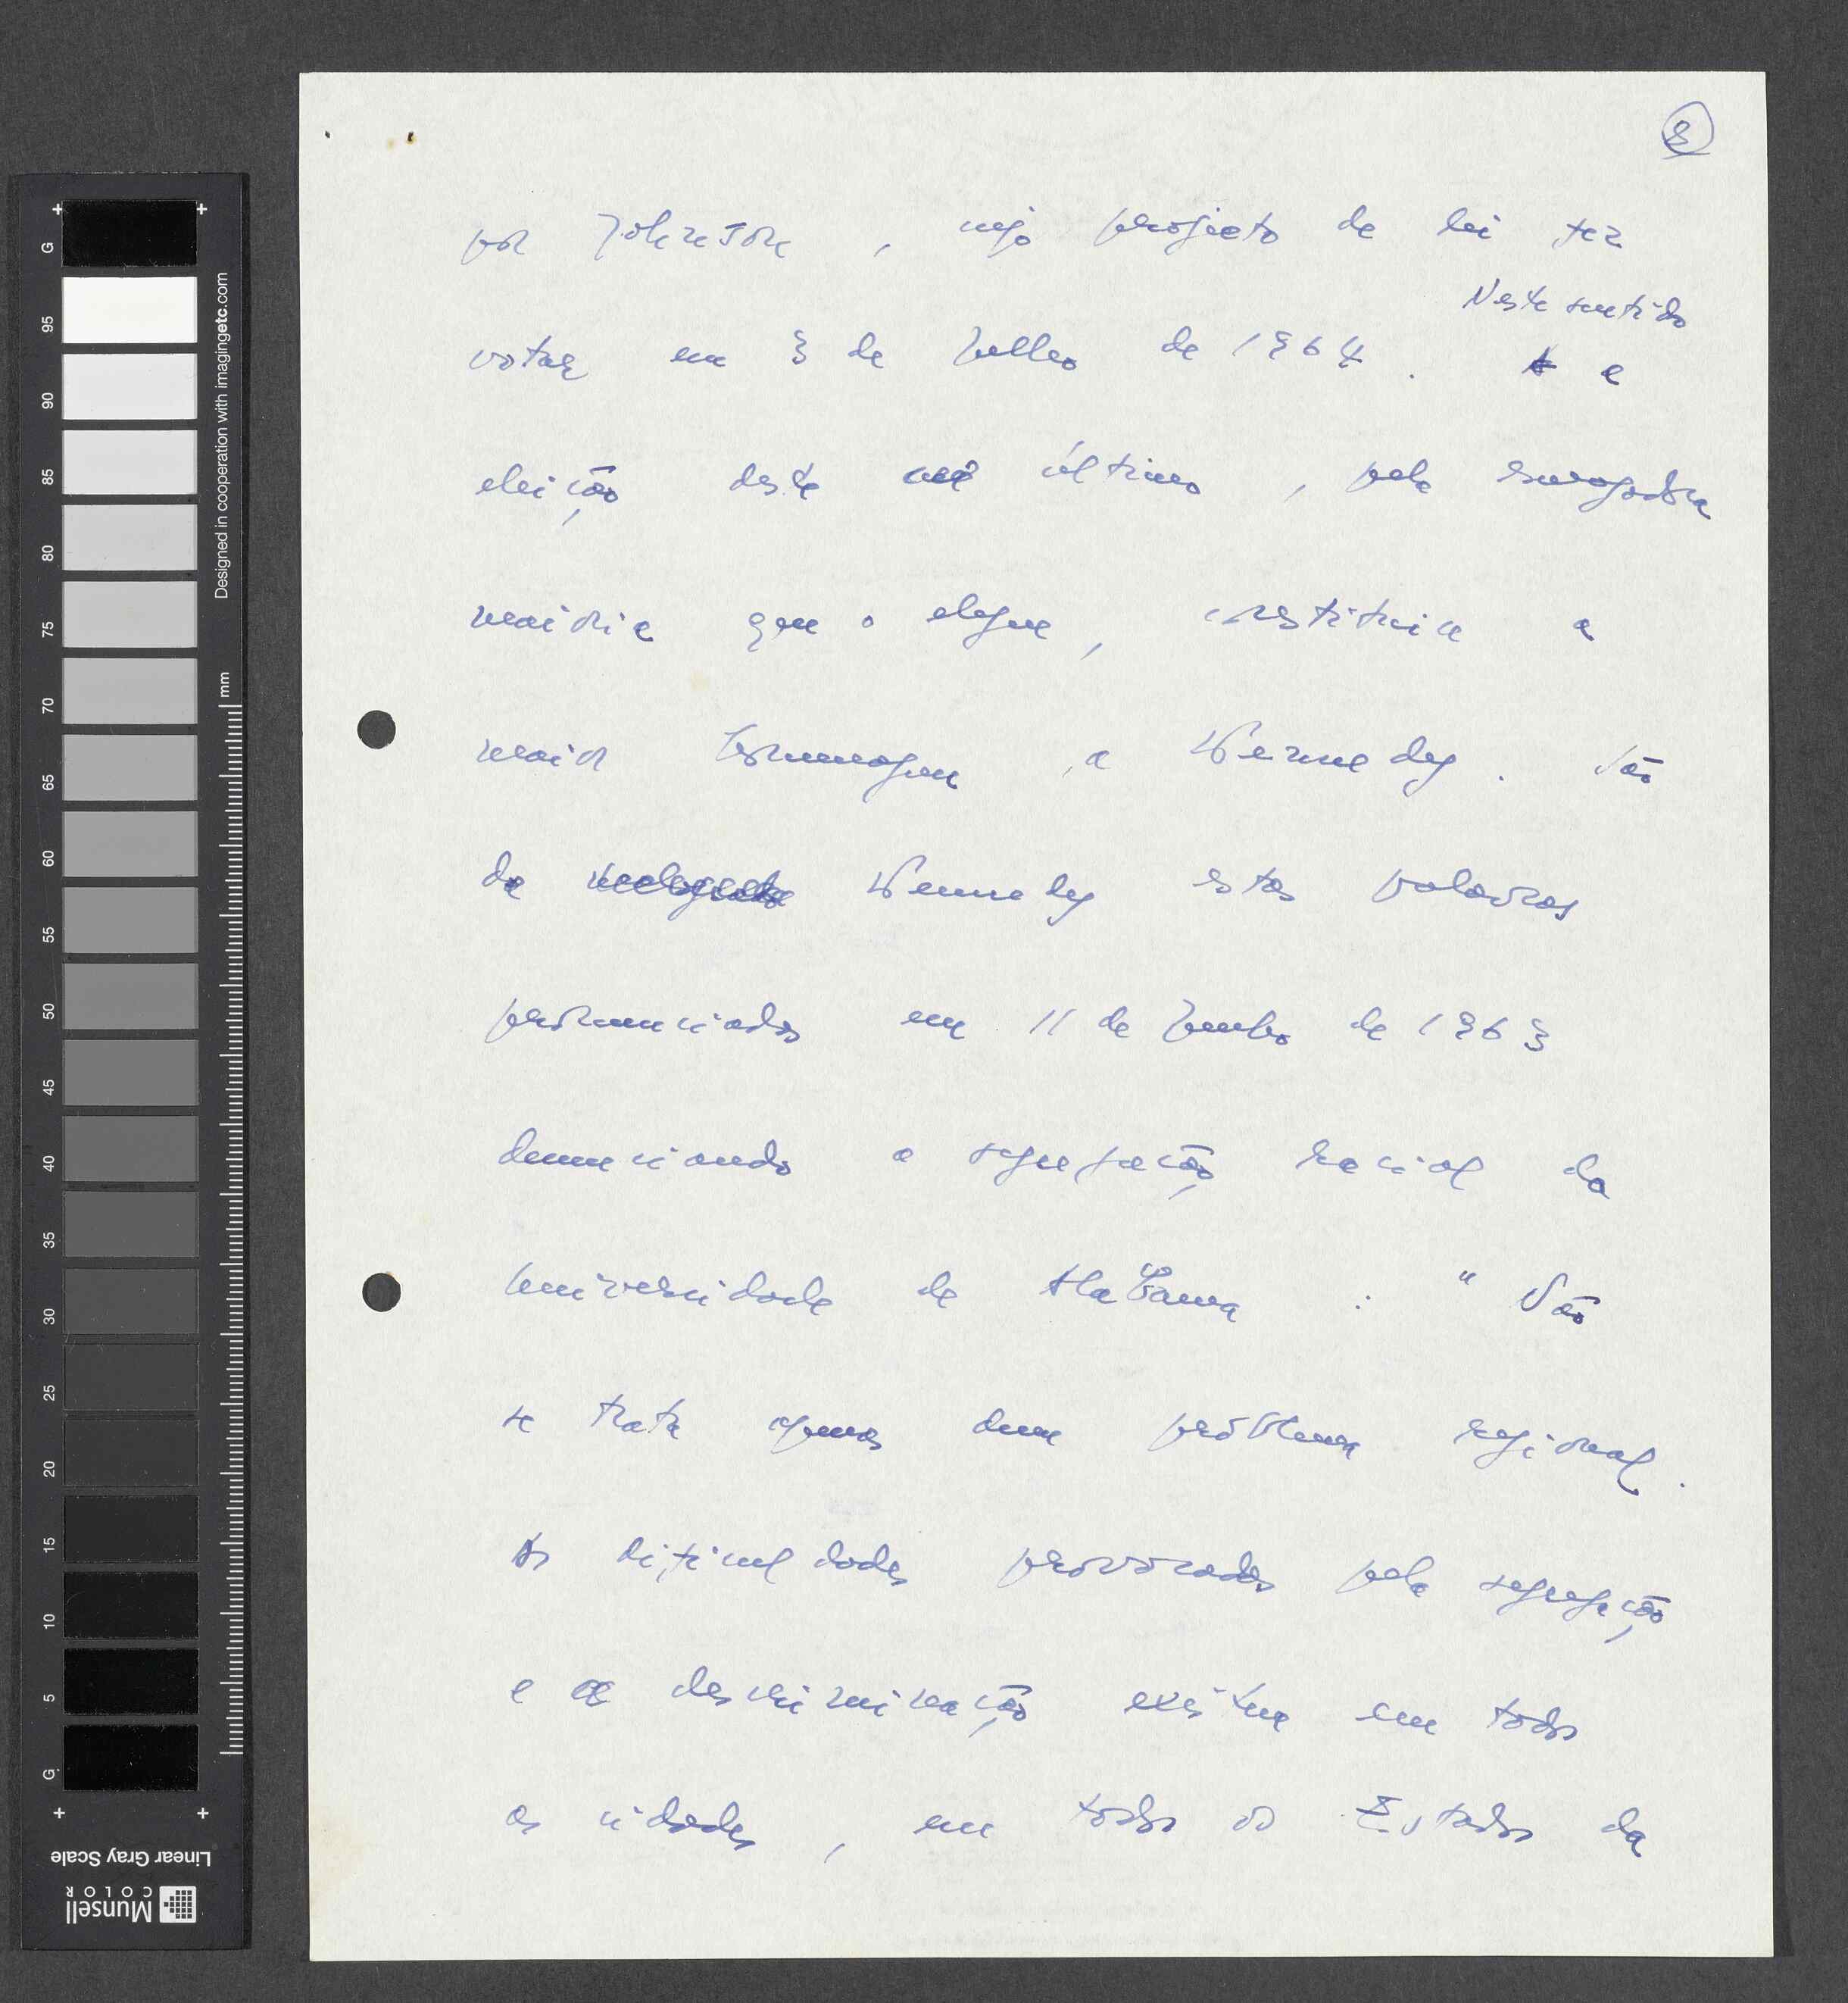 8
por Johnson, cujo projeto de lei fez
Neste sentido
votar em 3 de Julho de 1964. A a
eleição deste último, pela esmagadora
maioria que o elegeu, constituiu a
maior homenagem a Kennedy. São
de Kennedy estas palavras
pronunciadas em 11 de Junho de 1963
denunciando a segregação racial da
Universidade de Alabama : " Não
se trata apenas dum problema regional.
As dificuldades provocadas pela segregação
e descriminação existem em todas
as cidades, em todos os Estados da
G 95 90 85 80 75 70 65 60 55 50 45 40 35 30 25 20 15 10 5 G
mm
Designed in cooperation with imagingetc.com
Linear Gray Scale
Munsell
COLOR